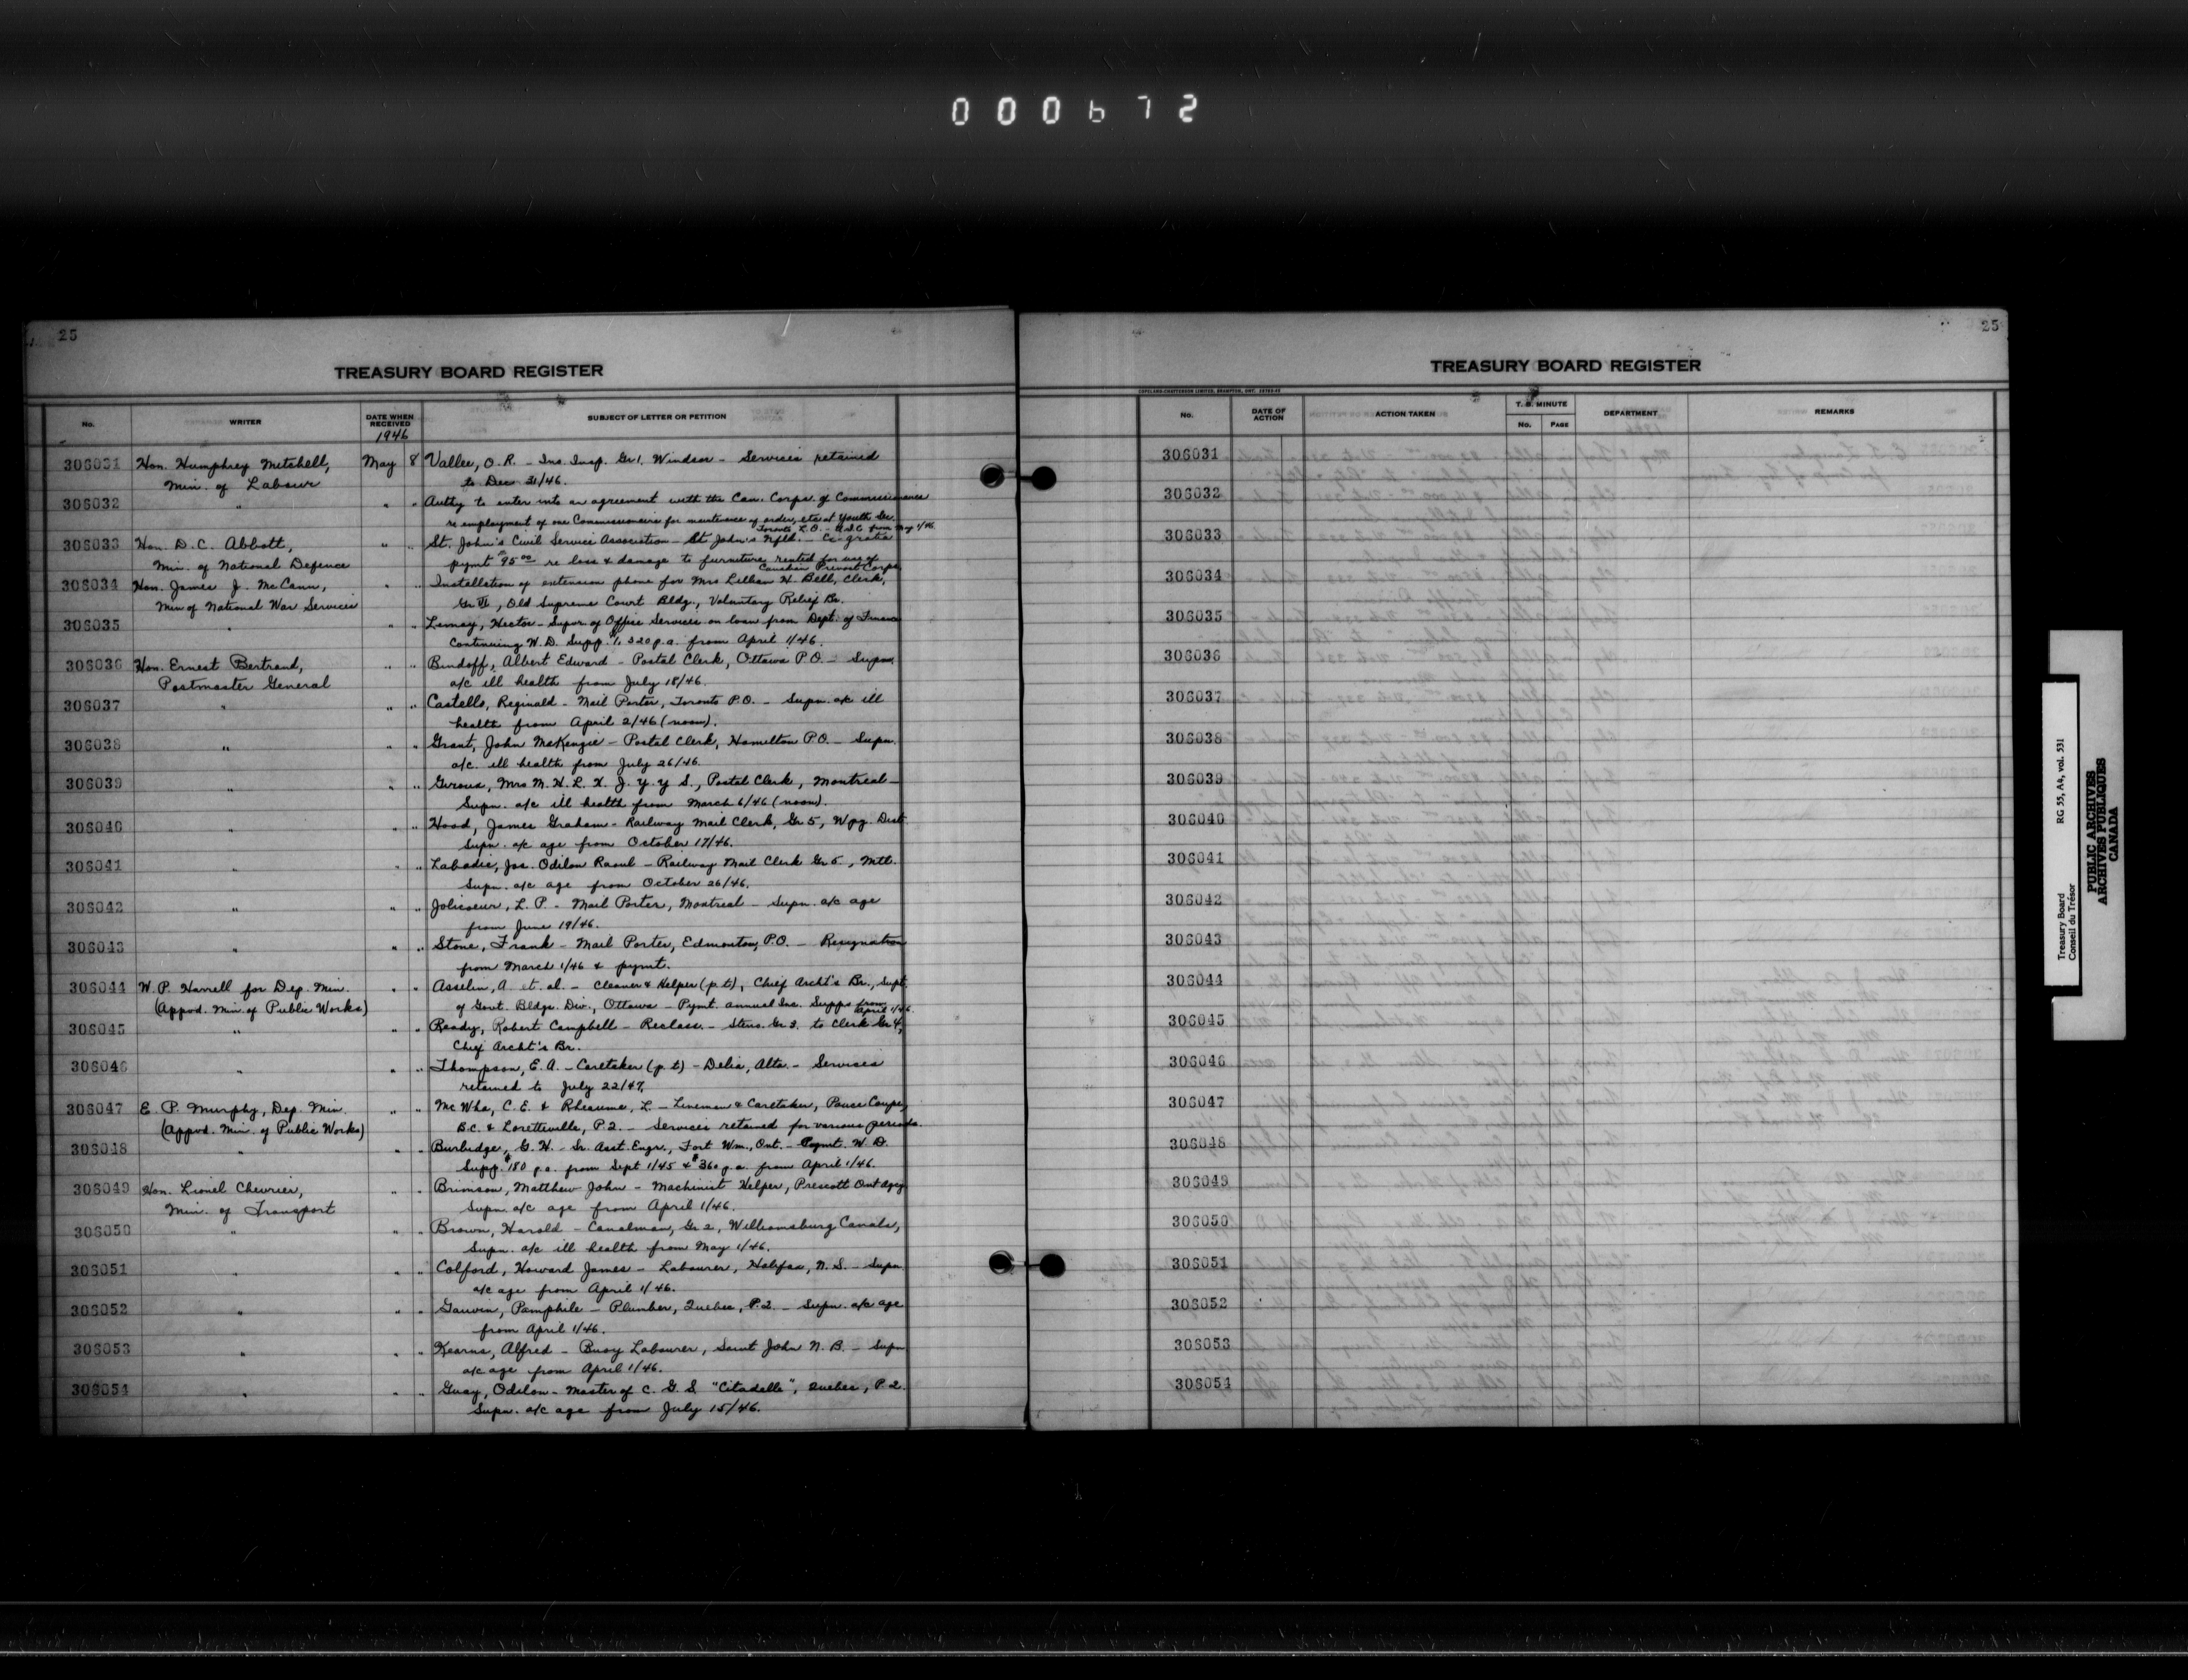 000672
25
TREASURY BOARD REGISTER
No. WRITER DATE WHEN RECEIVED SUBJECT OF LETTER OR PETITION
1946
306031 Hon. Humphrey Mitchell, May 8 Vallee, O.R. – Ins. Insp. Gr 1, Windsor – Services retained
Min. of Labour to Dec. 31/46.
306032 " " " Authy to enter into an agreement with the Can. Corps. of Commissionaires
re employment of one Commissionaire for maintenance of order, etc at Youth Sec.
Toronto L.O. – U.I.C. from May 1/46
306033 Hon. D.C. Abbott, " " St. John's Civil Service Association – St John's Nfld. – Ex-gratia
Min. of National Defence pymt $95.00 re loss & damage to furniture rented for use of
Canadian Provost Corps.
306034 Hon. James J. McCann, " " Installation of extension phone for Mrs Lillian H. Bell, Clerk,
Min of National War Services Old Supreme Court Bldg., Voluntary Relief Br.
306035 " " " Lemay, Hector – Supvr. of Office Services on loan from Dept. of Finance
Continuing W.D. Supp. $1,320 p.a. from April 1/46.
306036 Hon. Ernest Bertrand, " " Bindoff, Albert Edward – Postal Clerk, Ottawa P.O. – Supn.
Postmaster General a/c ill health from July 18/46.
306037 " " " Castello, Reginald – Mail Porter, Toronto P.O. – Supn. a/c ill
health from April 2/46 (noon).
306038 " " " Grant, John McKenzie – Postal Clerk, Hamilton P.O. – Supn.
a/c. ill health from July 26/46.
306039 " " " Giroux, Mrs M. H. L. X. J. Y. Y S., Postal Clerk, Montreal –
Supn. a/c ill health from March 6/46 (noon).
306040 " " " Hood, James Graham – Railway Mail Clerk, Gr 5, Wpg. Dist.
Supn. a/c age from October 17/46.
306041 " " " Labadie, Jos. Odilon Raoul – Railway Mail Clerk Gr 5, Mtl.
Supn. a/c age from October 26/46.
306042 " " " Jolicoeur, L. P. – Mail Porter, Montreal – Supn. a/c age
from June 19/46.
306043 " " " Stone, Frank – Mail Porter, Edmonton, P.O. – Resignation
from March 1/46 & pymt.
306044 W. P. Harrell for Dep. Min. " " Asselin, A. et. al. – Cleaner & Helper (p t), Chief Archt's Br., Supt.
(Appvd. Min. of Public Works) of Govt. Bldgs. Div., Ottawa – Pymt. annual Inc. Supps from
April 1/46.
306045 " " " Ready, Robert Campbell – Reclass. – Steno. Gr 3. to Clerk Gr 4,
Chief Archt's Br.
306046 " " " Thompson, E. A. – Caretaker (p t) – Delia, Alta. – Services
retained to July 22/47.
306047 E. P. Murphy, Dep. Min. " " McWha, C. E. & Rheaume, L. – Lineman & Caretaker, Pouce Coupe,
(Appvd. Min. of Public Works) B.C. & Loretteville, P.Q. – Services retained for various periods.
306048 " " " Burbidge, G. H. – Sr. Asst. Engr., Fort Wm., Ont. – Pymt. W. D.
Supp. $180 p.a. from Sept 1/45 & $360 p.a. from April 1/46.
306049 Hon. Lionel Chevrier, " " Brimson, Matthew John – Machinist Helper, Prescott Ont Agcy
Min. of Transport Supn. a/c age from April 1/46.
306050 " " " Brown, Harold – Canalman, Gr 2, Williamsburg Canals,
Supn. a/c ill health from May 1/46.
306051 " " " Colford, Howard James – Labourer, Halifax, N. S. – Supn.
a/c age from April 1/46.
306052 " " " Gauvin, Pamphile – Plumber, Quebec, P.Q. – Supn. a/c age
from April 1/46.
306053 " " " Kearns, Alfred – Buoy Labourer, Saint John N. B. – Supn
a/c age from April 1/46.
306054 " " " Guay, Odilon – Master of C. G. S. "Citadelle", Quebec, P.Q.
Supn. a/c age from July 15/46.
25
TREASURY BOARD REGISTER
COPELAND-CHATTERSON LIMITED, BRAMPTON, ONT.
No. DATE OF ACTION ACTION TAKEN T. B. MINUTE No. PAGE DEPARTMENT REMARKS
306031
306032
306033
306034
306035
306036
306037
306038
306039
306040
306041
306042
306043
306044
306045
306046
306047
306048
306049
306050
306051
306052
306053
306054
Treasury Board RG 55, A4, vol. 531
Conseil du Trésor
PUBLIC ARCHIVES
ARCHIVES PUBLIQUES
CANADA